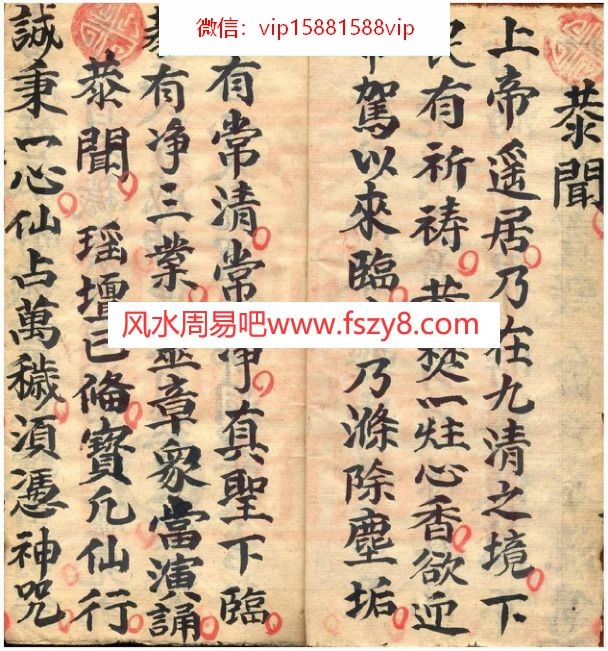 微信：vip15881588vip
恭聞
上帝遥居乃在九清之境下
民有祈祷恭焚一炷心香欲迎
駕以來臨乃滌除塵垢
有常清常净真聖下臨
有净三業靈章衆當演誦
恭聞 瑶壇已俻寳几仙行
誠秉一心仙占萬穢湏憑神咒
风水周易吧www.fszy8.com